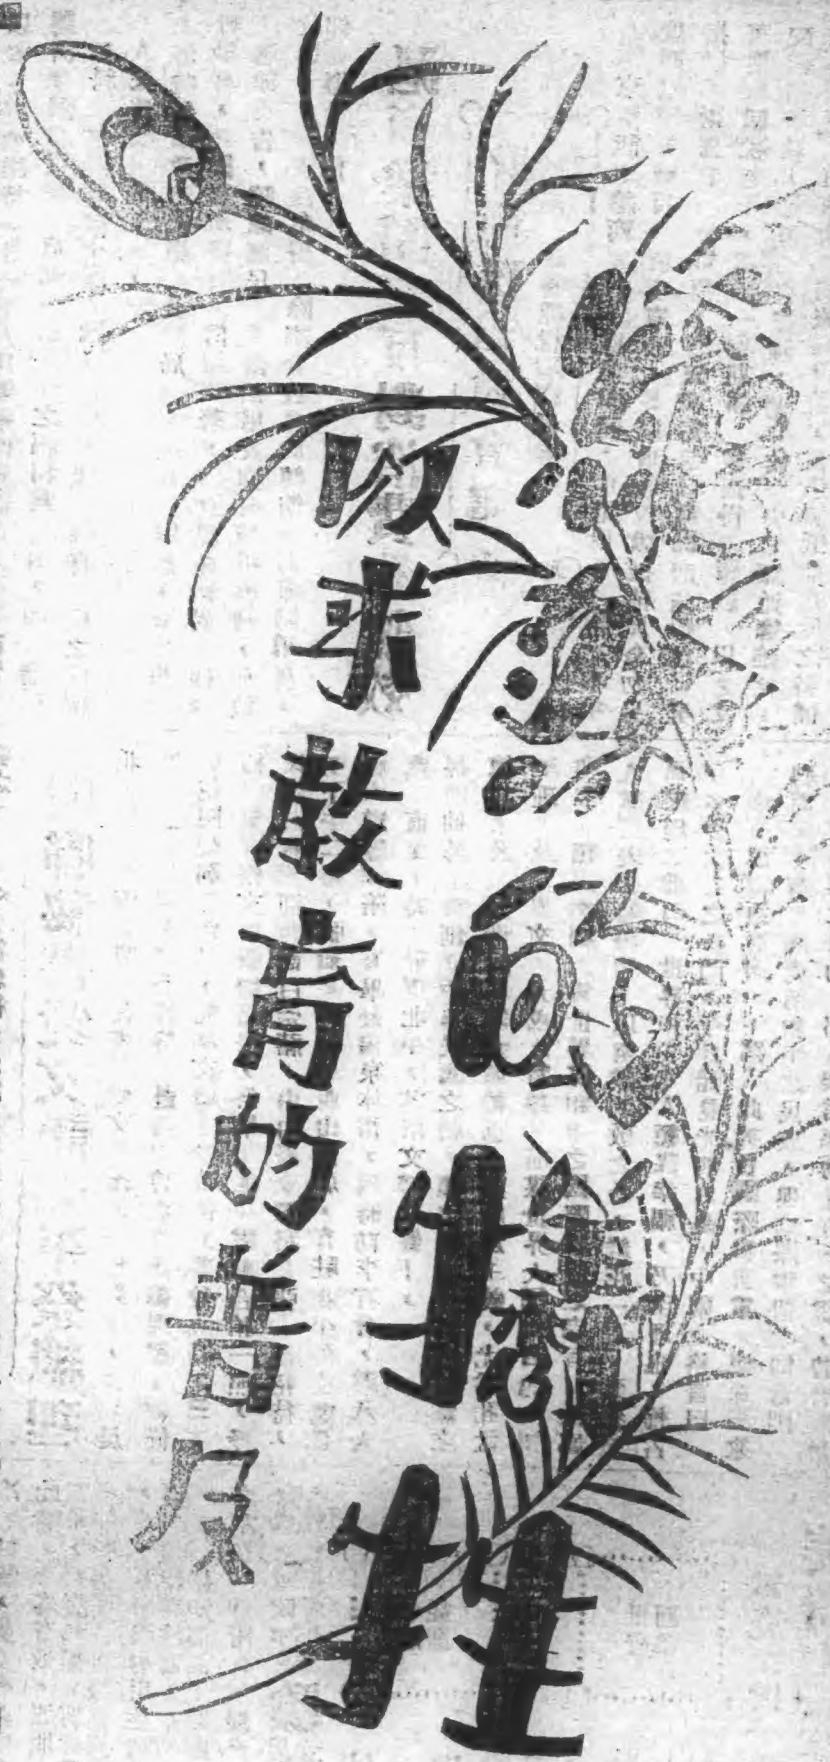 的犧牲
以求敎育的普及